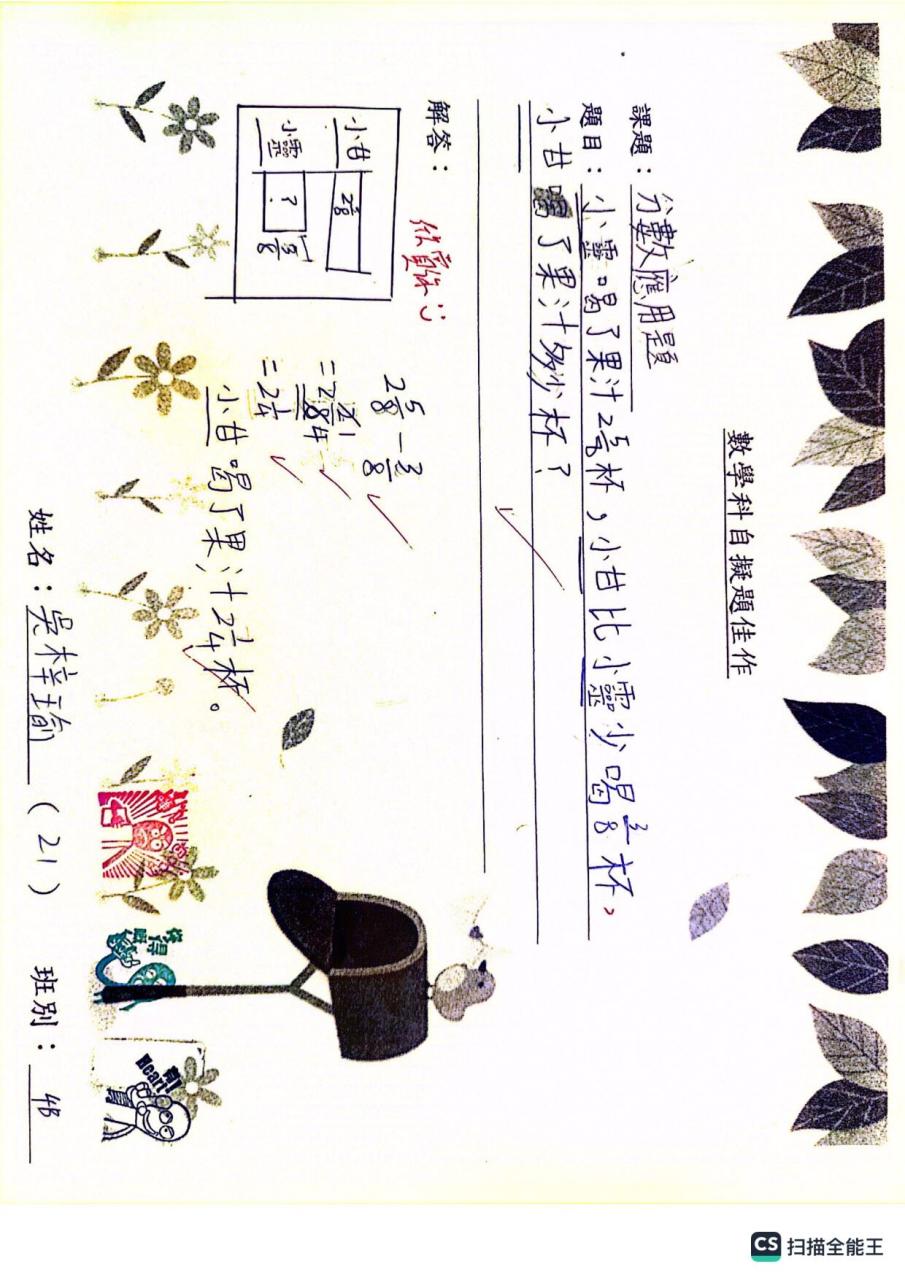 數學科自擬題佳作
課題：分數應用題
題目：小靈喝了果汁2 5/8杯，小甘比小靈少喝3/8杯，
小甘喝了果汁多少杯？
解答：
欣賞你
小甘
小靈
?
3/8
2 5/8 - 3/8
=2 2/8
=2 1/4
小甘喝了果汁2 1/4杯。
姓名：吳梓瑜 (21) 班別：4B
你得
Heart
CS 扫描全能王